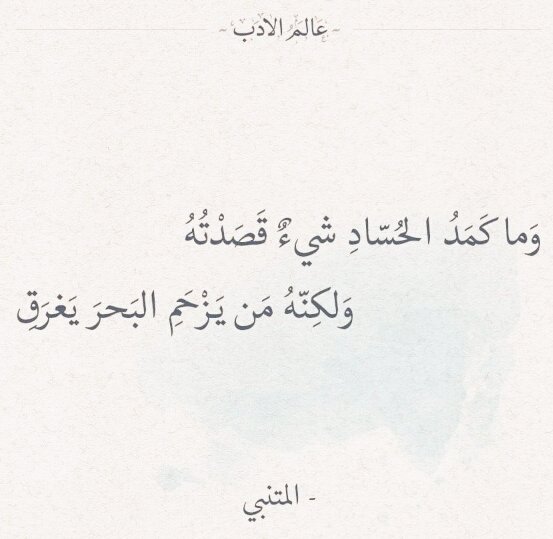 ~ عَالَمُ الأدَب ~
وَما كَمَدُ الحُسّادِ شيءٌ قَصَدْتُهُ
وَلكِنّهُ مَن يَزْحَمِ البَحرَ يَغرَقِ
- المتنبي